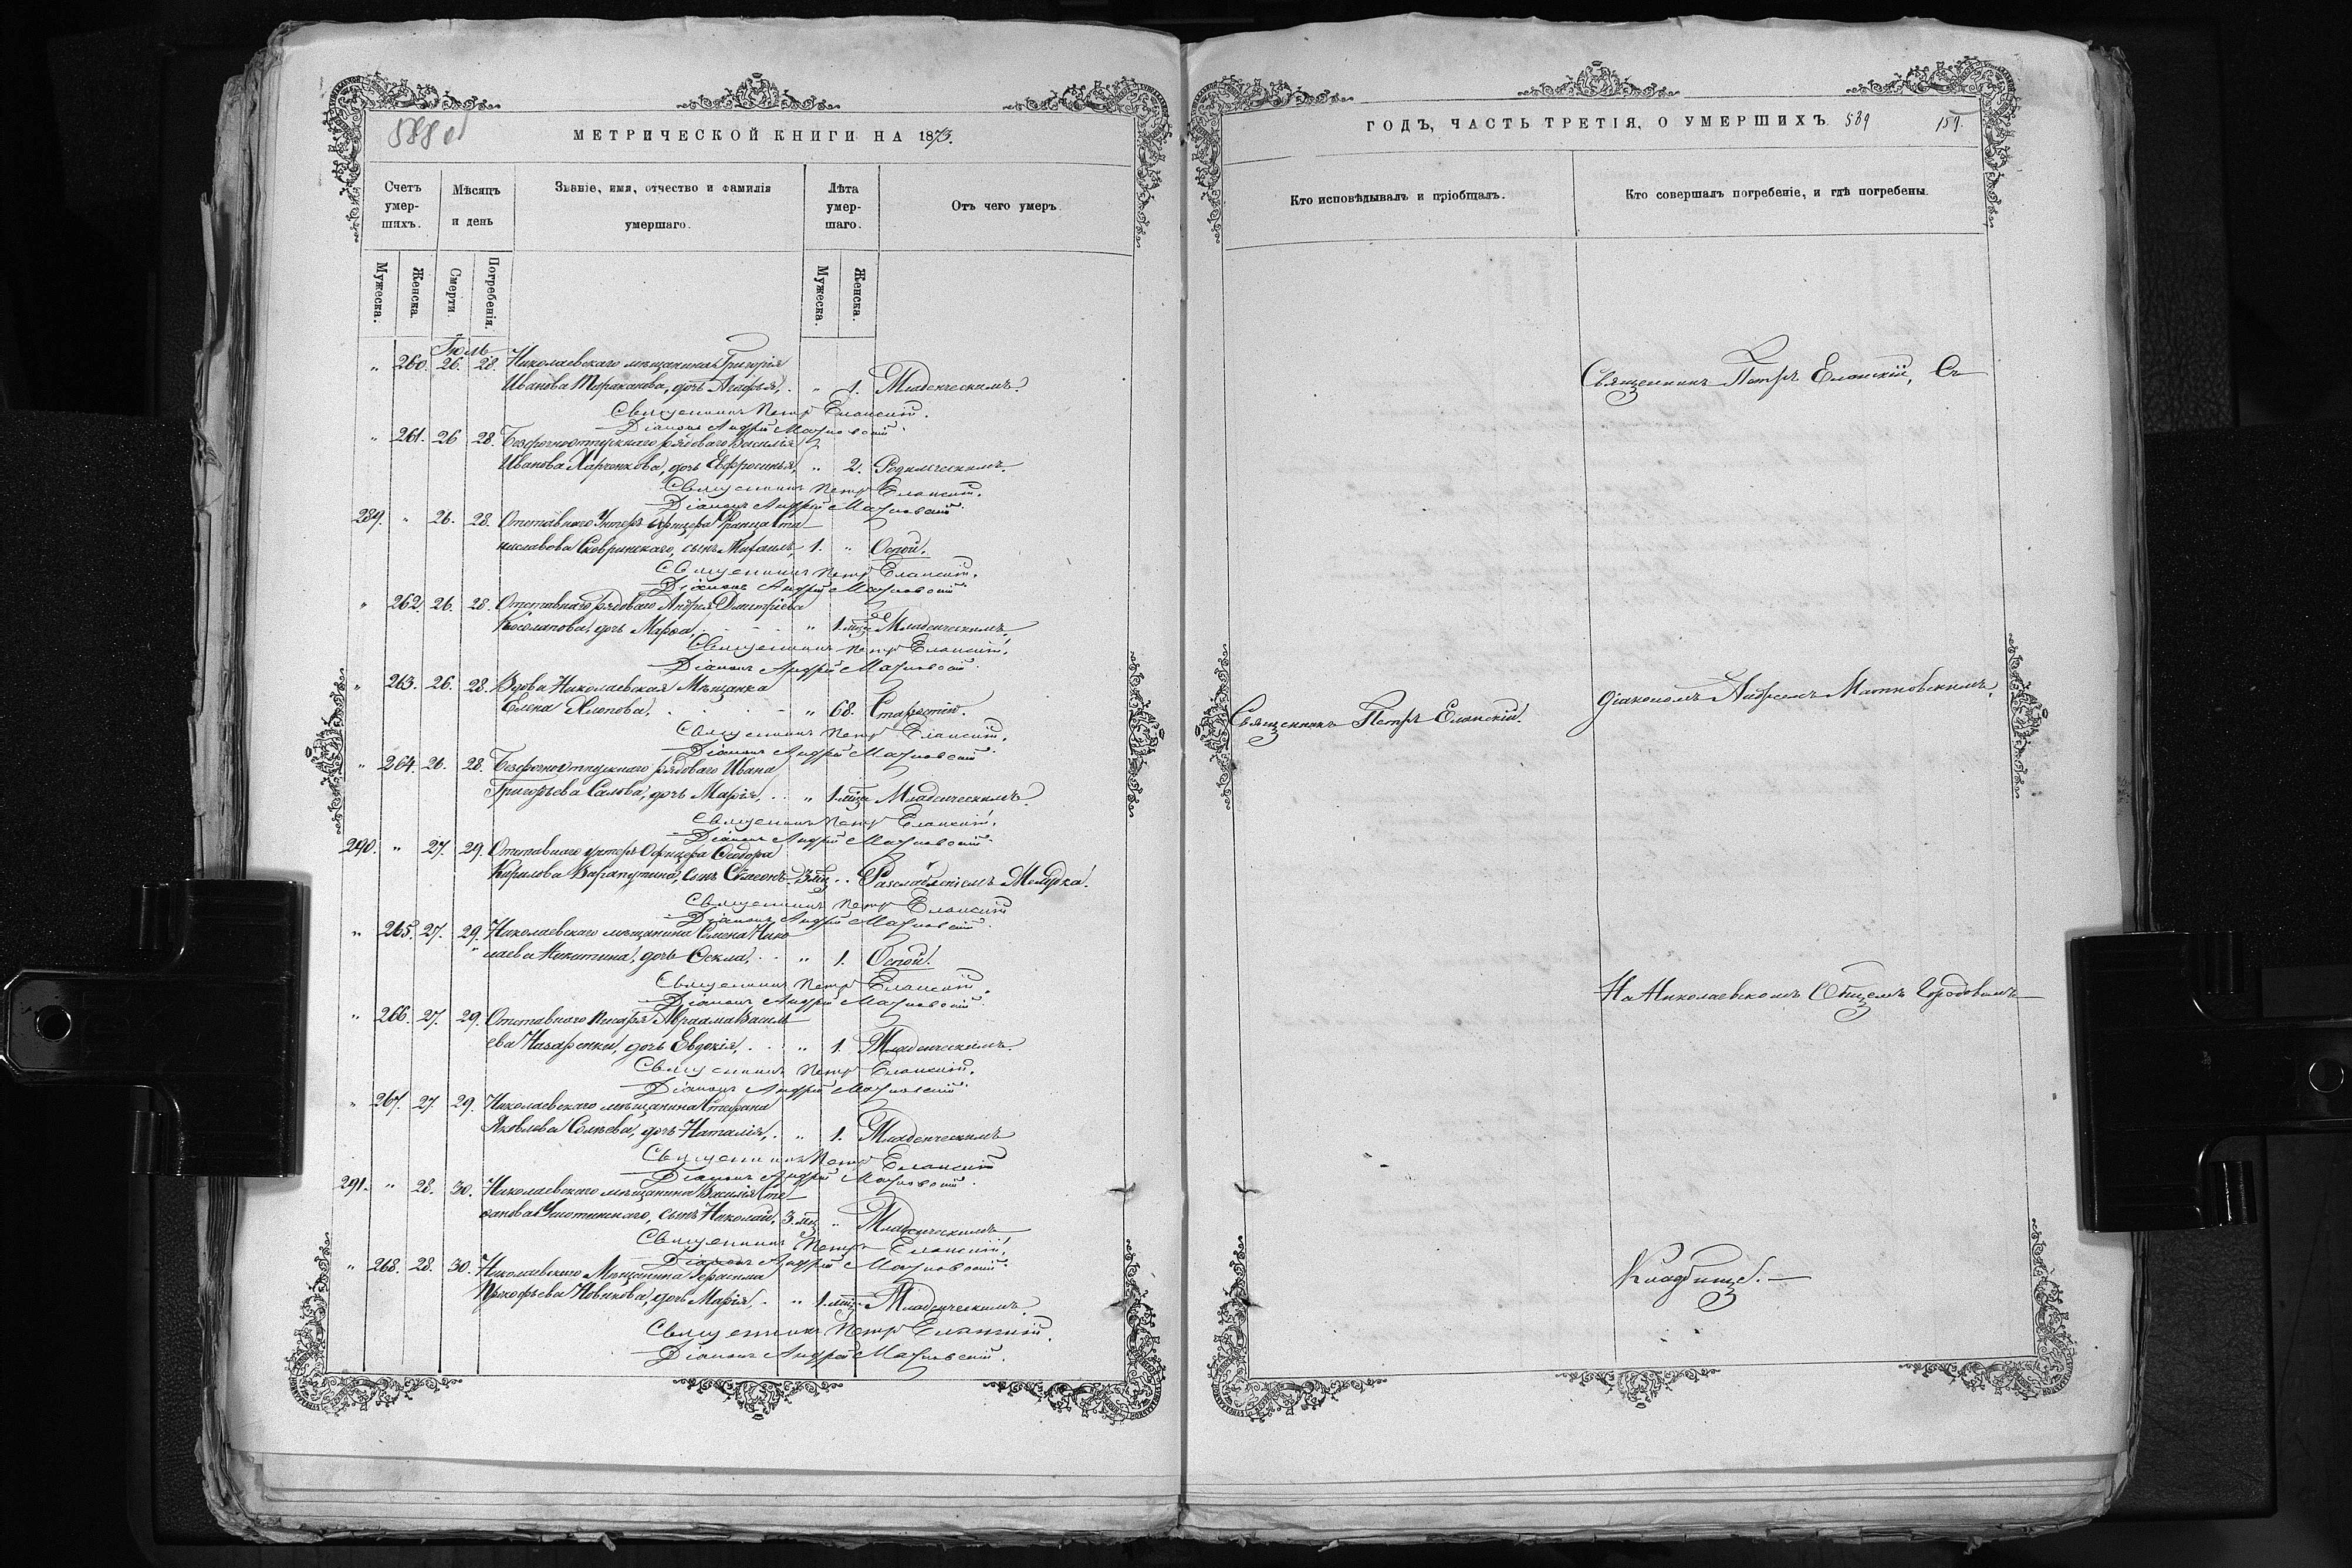 588 об
МЕТРИЧЕСКОЙ КНИГИ НА 1873.
Счетъ умер-шихъ.
Мѣсяцъ и день
Званіе, имя, отчество и фамилія умершаго.
Лѣта умер-шаго.
Отъ чего умеръ.
Мужеска.
Женска.
Смерти.
Погребенія.
Мужеска.
Женска.
Іюль
" 260. 26. 28. Николаевскаго мѣщанина Григорія
Иванова Тараканова, дочь Агафья, " 1. Младенческимъ.
Священникъ Петръ Еланскій.
Діаконъ Андрей
" 261. 26 28. Безсрочноотпускнаго рядоваго Василія
Иванова Харченкова, дочь Евфросинья, " 2. Родимческимъ.
Священникъ Петръ Еланскій.
Діаконъ Андрей
289. " 26. 28. Отставнаго Унтеръ Офицера Франца Ста-
ниславова сынъ Михаилъ, 1. " Оспой.
Священникъ Петръ Еланскій.
Діаконъ Андрей
" 262. 26. 28. Отставнаго рядоваго Андрея Дмитріева
Косолапова, дочь Марѳа, " 1 мѣс. Младенческимъ.
Священникъ Петръ Еланскій.
Діаконъ Андрей
" 263. 26. 28. Вдова Николаевская Мѣщанка
Елена " 68. Старостію.
Священникъ Петръ Еланскій.
Діаконъ Андрей
" 264. 26. 28. Безсрочноотпускнаго рядоваго Ивана
Григорьева Салова, дочь Марія, " 1 мѣс. Младенческимъ.
Священникъ Петръ Еланскій.
Діаконъ Андрей
290. " 27. 29. Отставнаго унтеръ Офицера Ѳеодора
Кирилова сынъ Симеонъ, 3 мѣс. "
Священникъ Петръ Еланскій
Діаконъ Андрей
" 265. 27. 29. Николаевскаго мѣщанина Семена Нико
лаева Никитина, дочь Ѳекла, " 1. Оспой.
Священникъ Петръ Еланскій.
Діаконъ Андрей
" 266. 27. 29. Отставнаго писаря Авраама Василь
ева Назаренки, дочь Евдокія, " 1. Младенческимъ.
Священникъ Петръ Еланскій.
Діаконъ Андрей
" 267. 27. 29. Николаевскаго мѣщанина Стефана
Яковлева дочь Наталія, " 1. Младенческимъ
Священникъ Петръ Еланскій
Діаконъ Андрей
291. " 28. 30. Николаевскаго мѣщанина Василія Сте-
фанова сынъ Николай, 3 мѣс. " Младенческимъ
Священникъ Петръ Еланскій.
Діаконъ Андрей
" 268. 28. 30. Николаевскаго Мѣщанина Герасима
Прокофьева Новикова, дочь Марія, " 1 мѣс. Младенческимъ.
Священникъ Петръ Еланскій.
Діаконъ Андрей
ГОДЪ, ЧАСТЬ ТРЕТІЯ, О УМЕРШИХЪ. 589 159.
Кто исповѣдывалъ и пріобщалъ.
Кто совершалъ погребеніе, и гдѣ погребены.
Священникъ Петръ Еланскій, Съ
Священникъ Петръ Еланскій.
діакономъ Андреемъ
На Николаевскомъ Общемъ Городовомъ
Кладбищѣ.